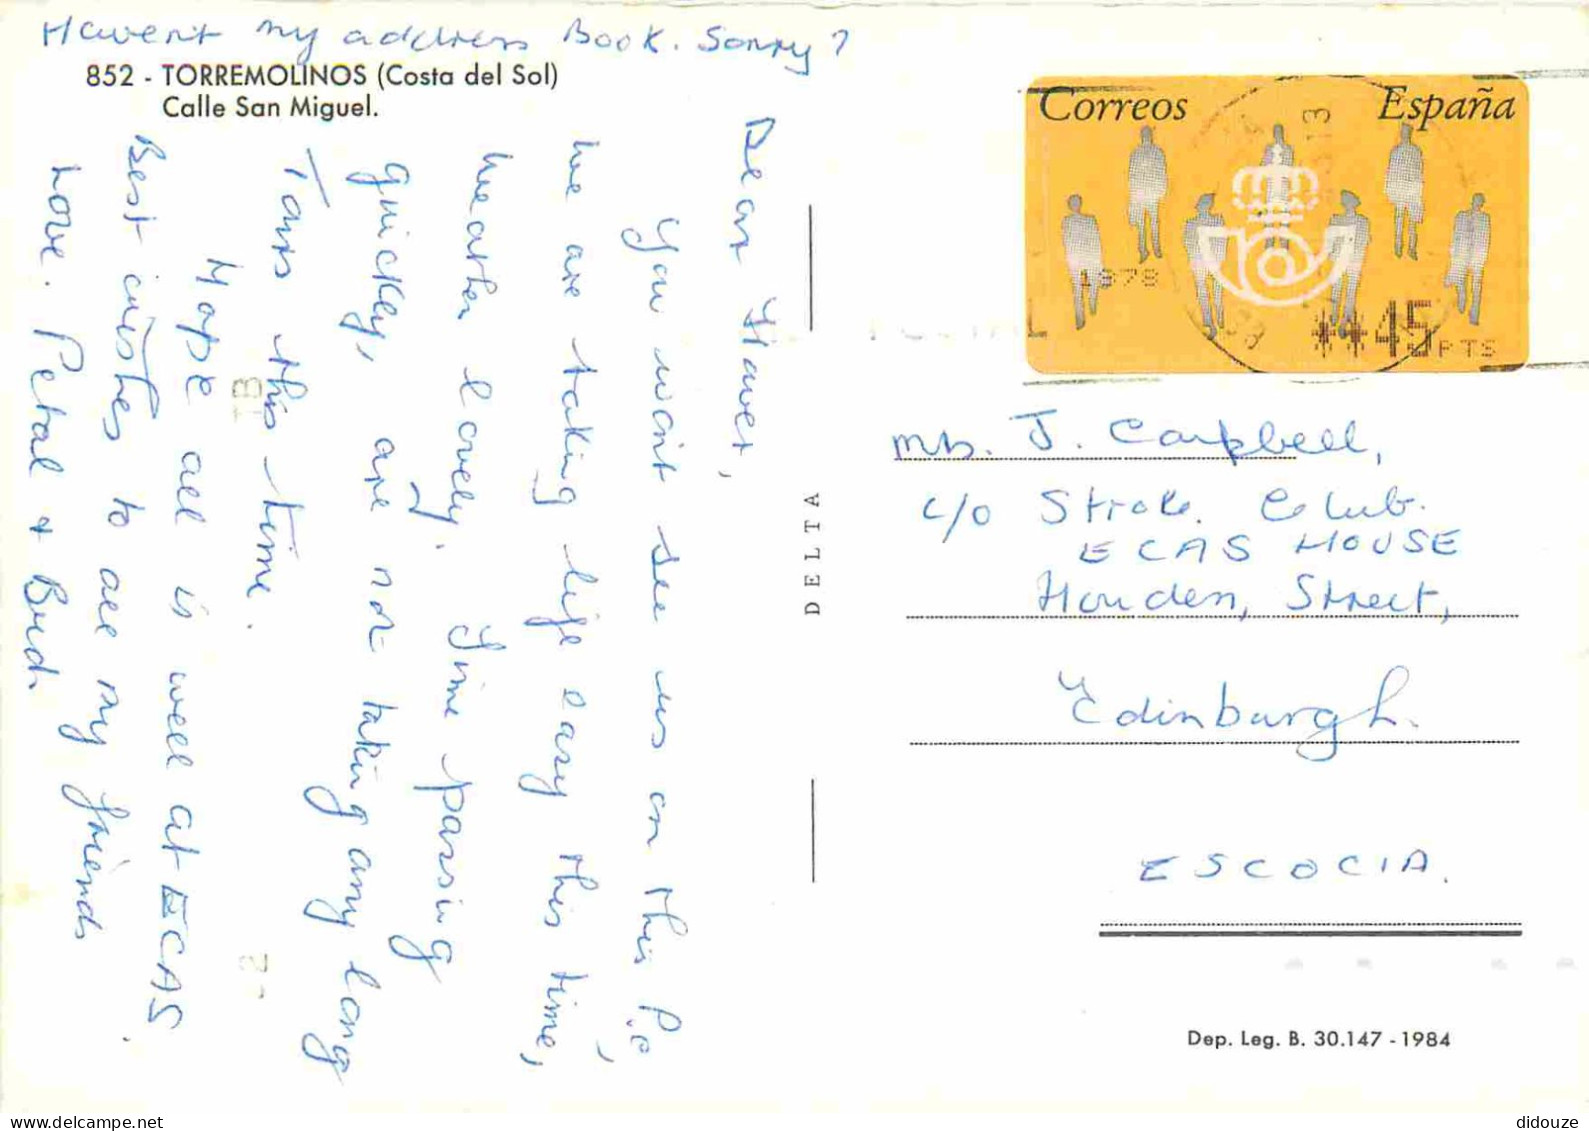 Havent my address Book. Sorry?
852 - TORREMOLINOS (Costa del Sol)
Calle San Miguel.
Dear
You wont see us on this P.C,
we are taking life easy this time,
Weather lovely. Time passing
quickly, are not taking any long
Tours this time.
Hope all is well at ECAS.
Best wishes to all my friends
Love. Petal + Bud.
DELTA
Correos España
1878
**45 PTS
13
TB
- 2
Mrs. J. Campbell,
c/o Stroke. Club.
ECAS HOUSE
Street,
Edinburgh.
ESCOCIA.
Dep. Leg. B. 30.147 - 1984
www.delcampe.net
didouze